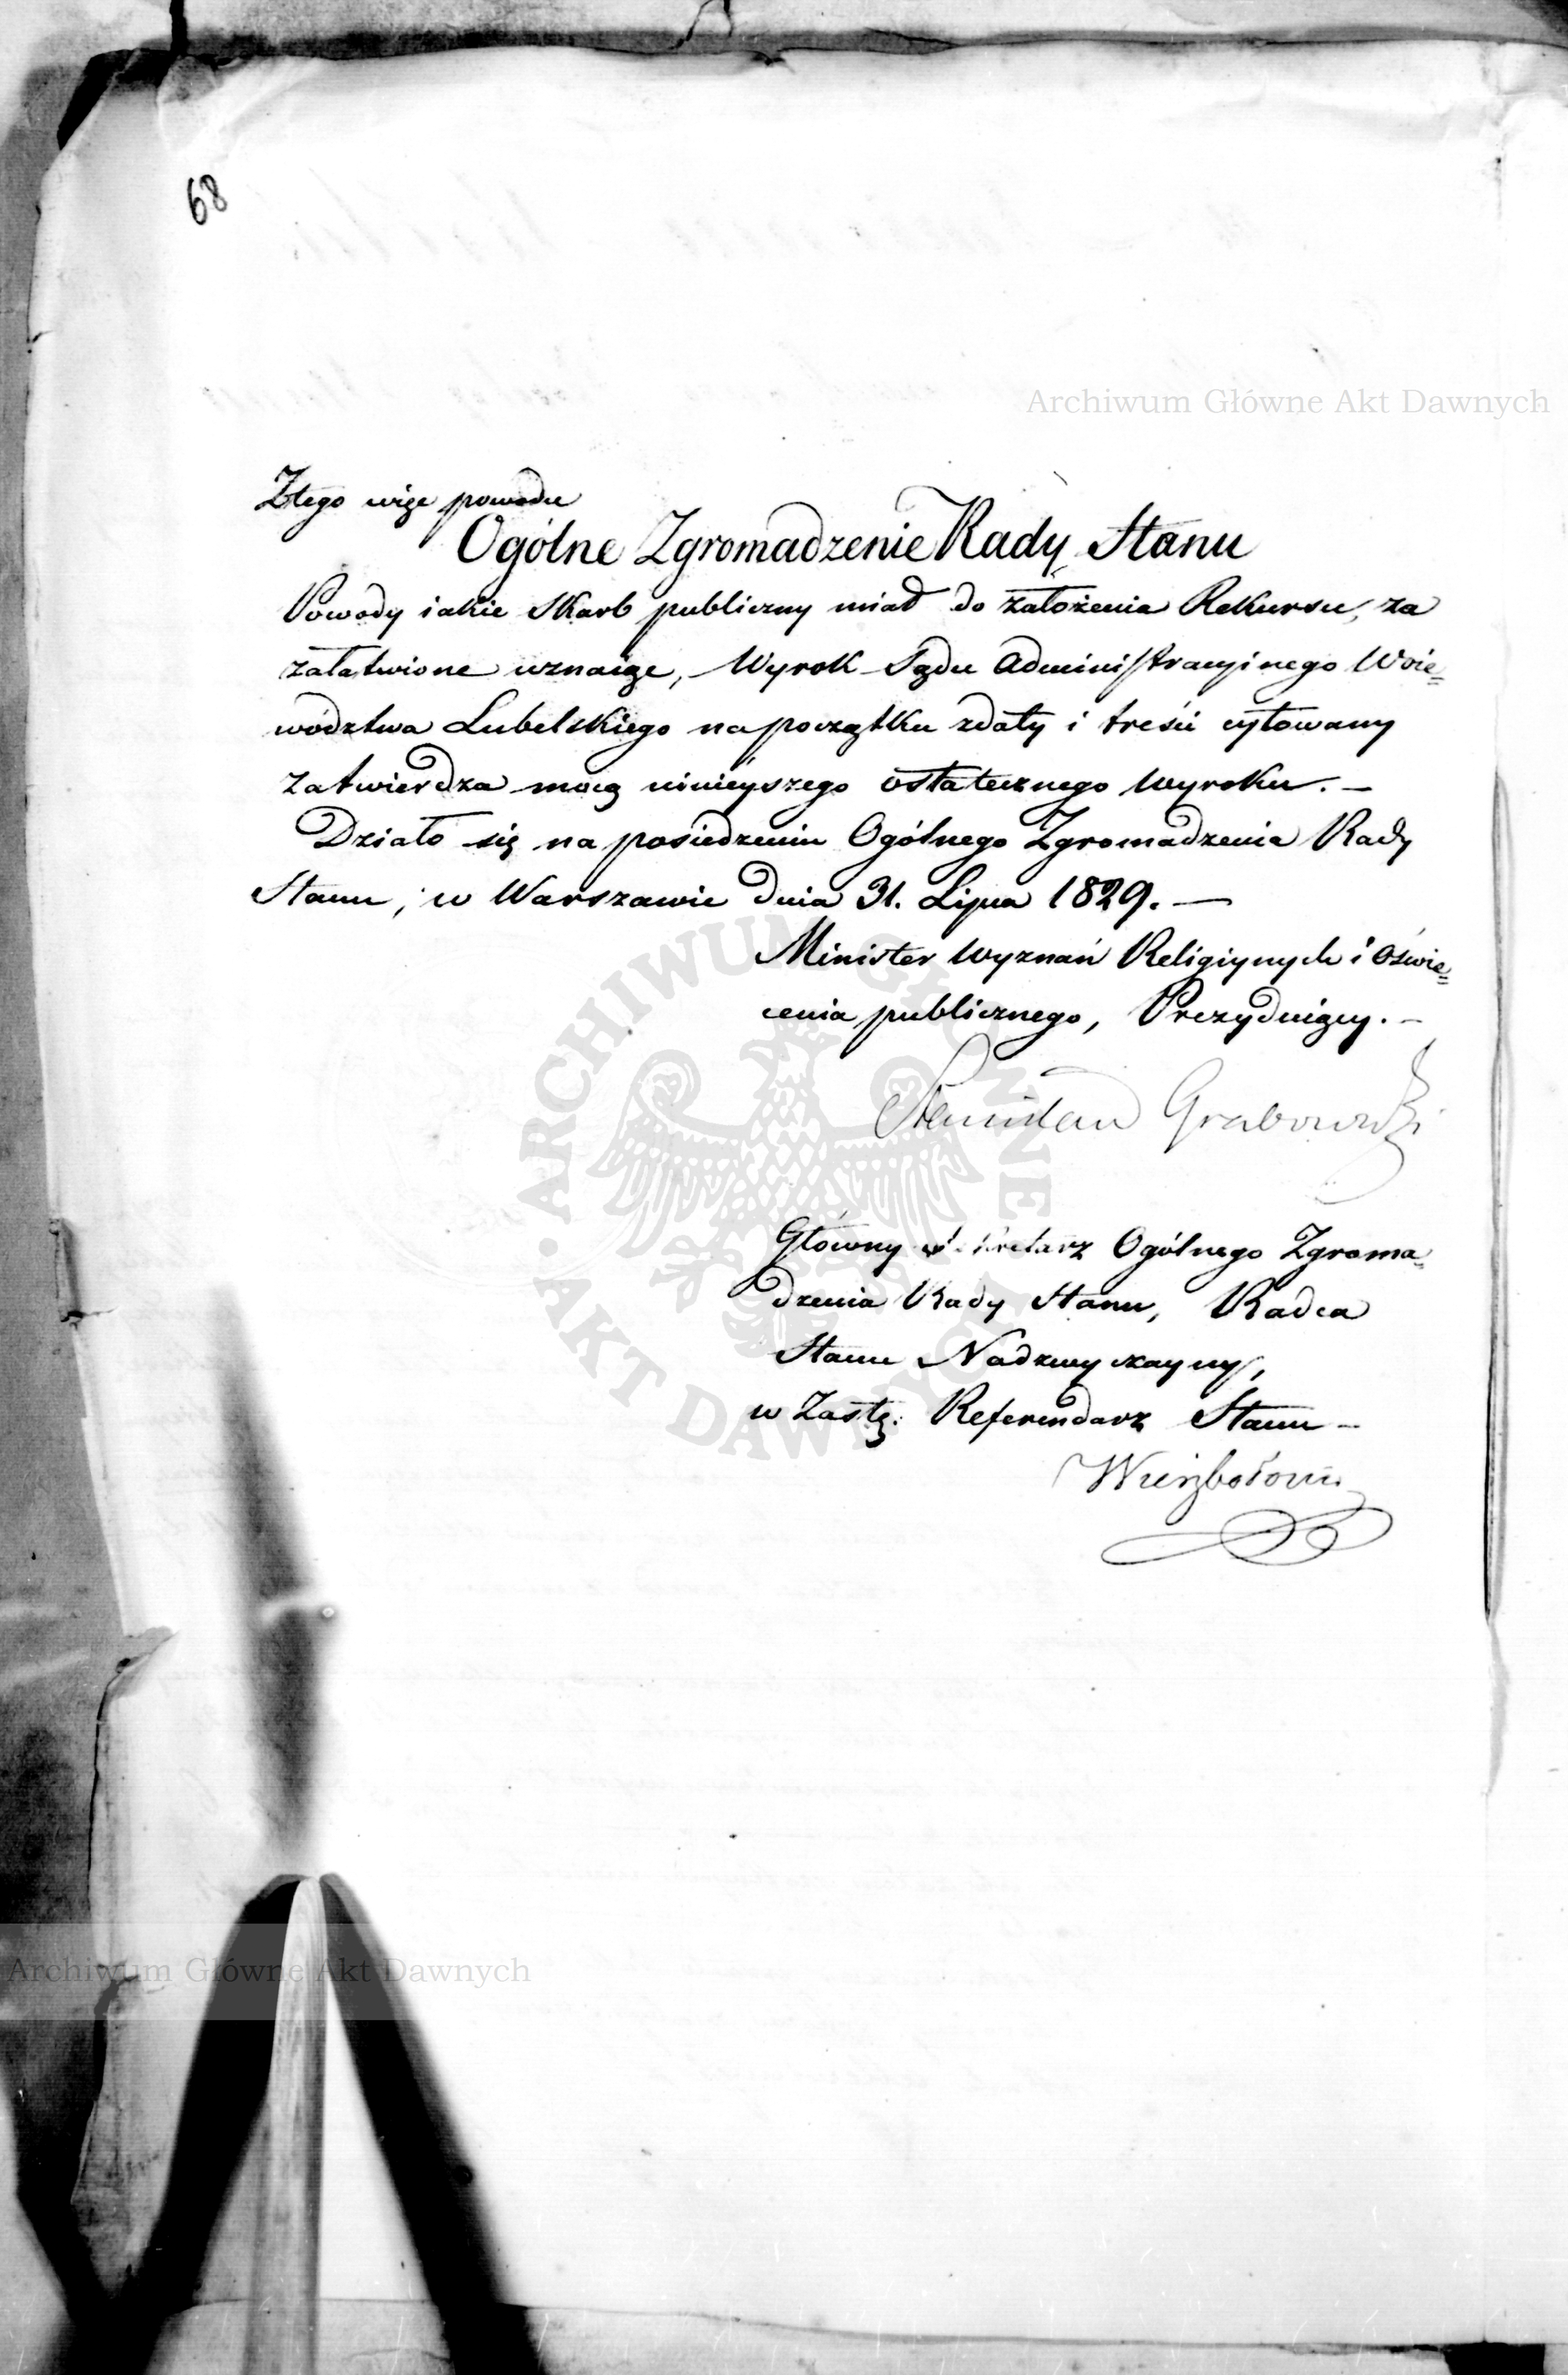 68
Archiwum Główne Akt Dawnych
Ztego więc powodu
Ogólne Zgromadzenie Rady Stanu
Powody iakie Skarb publiczny miał do założenia Rekursu, za
załatwione uznaiąc, Wyrok Sądu Administracyinego Woie=
wództwa Lubelskiego napoczątku zdaty i treści cytowany
zatwierdza mocą ninieyszego ostatecznego Wyroku. —
Działo się na posiedzeniu Ogólnego Zgromadzenia Rady
Stanu, w Warszawie dnia 31. Lipca 1829. —
Minister Wyznań Religiynych i Oświe=
cenia publicznego, Prezyduiący. —
Stanisław Grabowski
Główny Sekretarz Ogólnego Zgroma=
dzenia Rady Stanu, Radca
Stanu Nadzwyczayny,
w Zastę: Referendarz Stanu —
Wierzbołowi
ARCHIWUM GŁÓWNE AKT DAWNYCH
Archiwum Główne Akt Dawnych